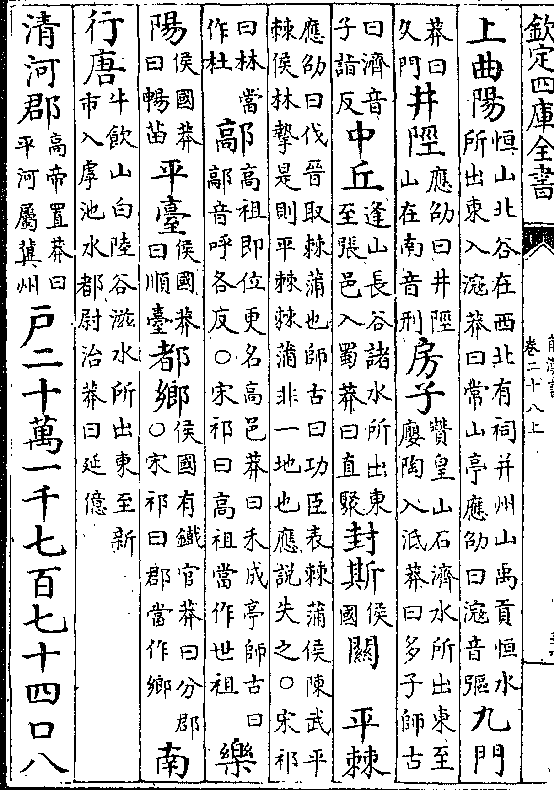 欽定四庫全書
前漢書
卷二十八上
上曲陽恒山北谷在西北有祠并州山禹貢恒水所出東入滱莽曰常山亭應劭曰滱音彄九門
莽曰久門井陘應劭曰井陘山在南音刑房子贊皇山石濟水所出東至廮陶入泜莽曰多子師古
曰濟音子詣反中丘逢山長谷諸水所出東至張邑入蜀莽曰直聚封斯侯國關 平棘
應劭曰伐晉取棘蒲也師古曰功臣表棘蒲侯陳武平棘侯林摯是則平棘棘蒲非一地也應説失之○宋祁
曰林當作杜鄗高祖即位更名高邑莽曰禾成亭師古曰鄗音呼各反○宋祁曰高祖當作世祖樂
陽侯國莽曰暢苗平臺侯國莽曰順臺都鄉侯國有鐵官莽曰分郡○宋祁曰郡當作鄉南
行唐牛飲山白陸谷滋水所出東至新市入虖池水都尉治莽曰延億
清河郡高帝置莽曰平河屬冀州戶二十萬一千七百七十四口八